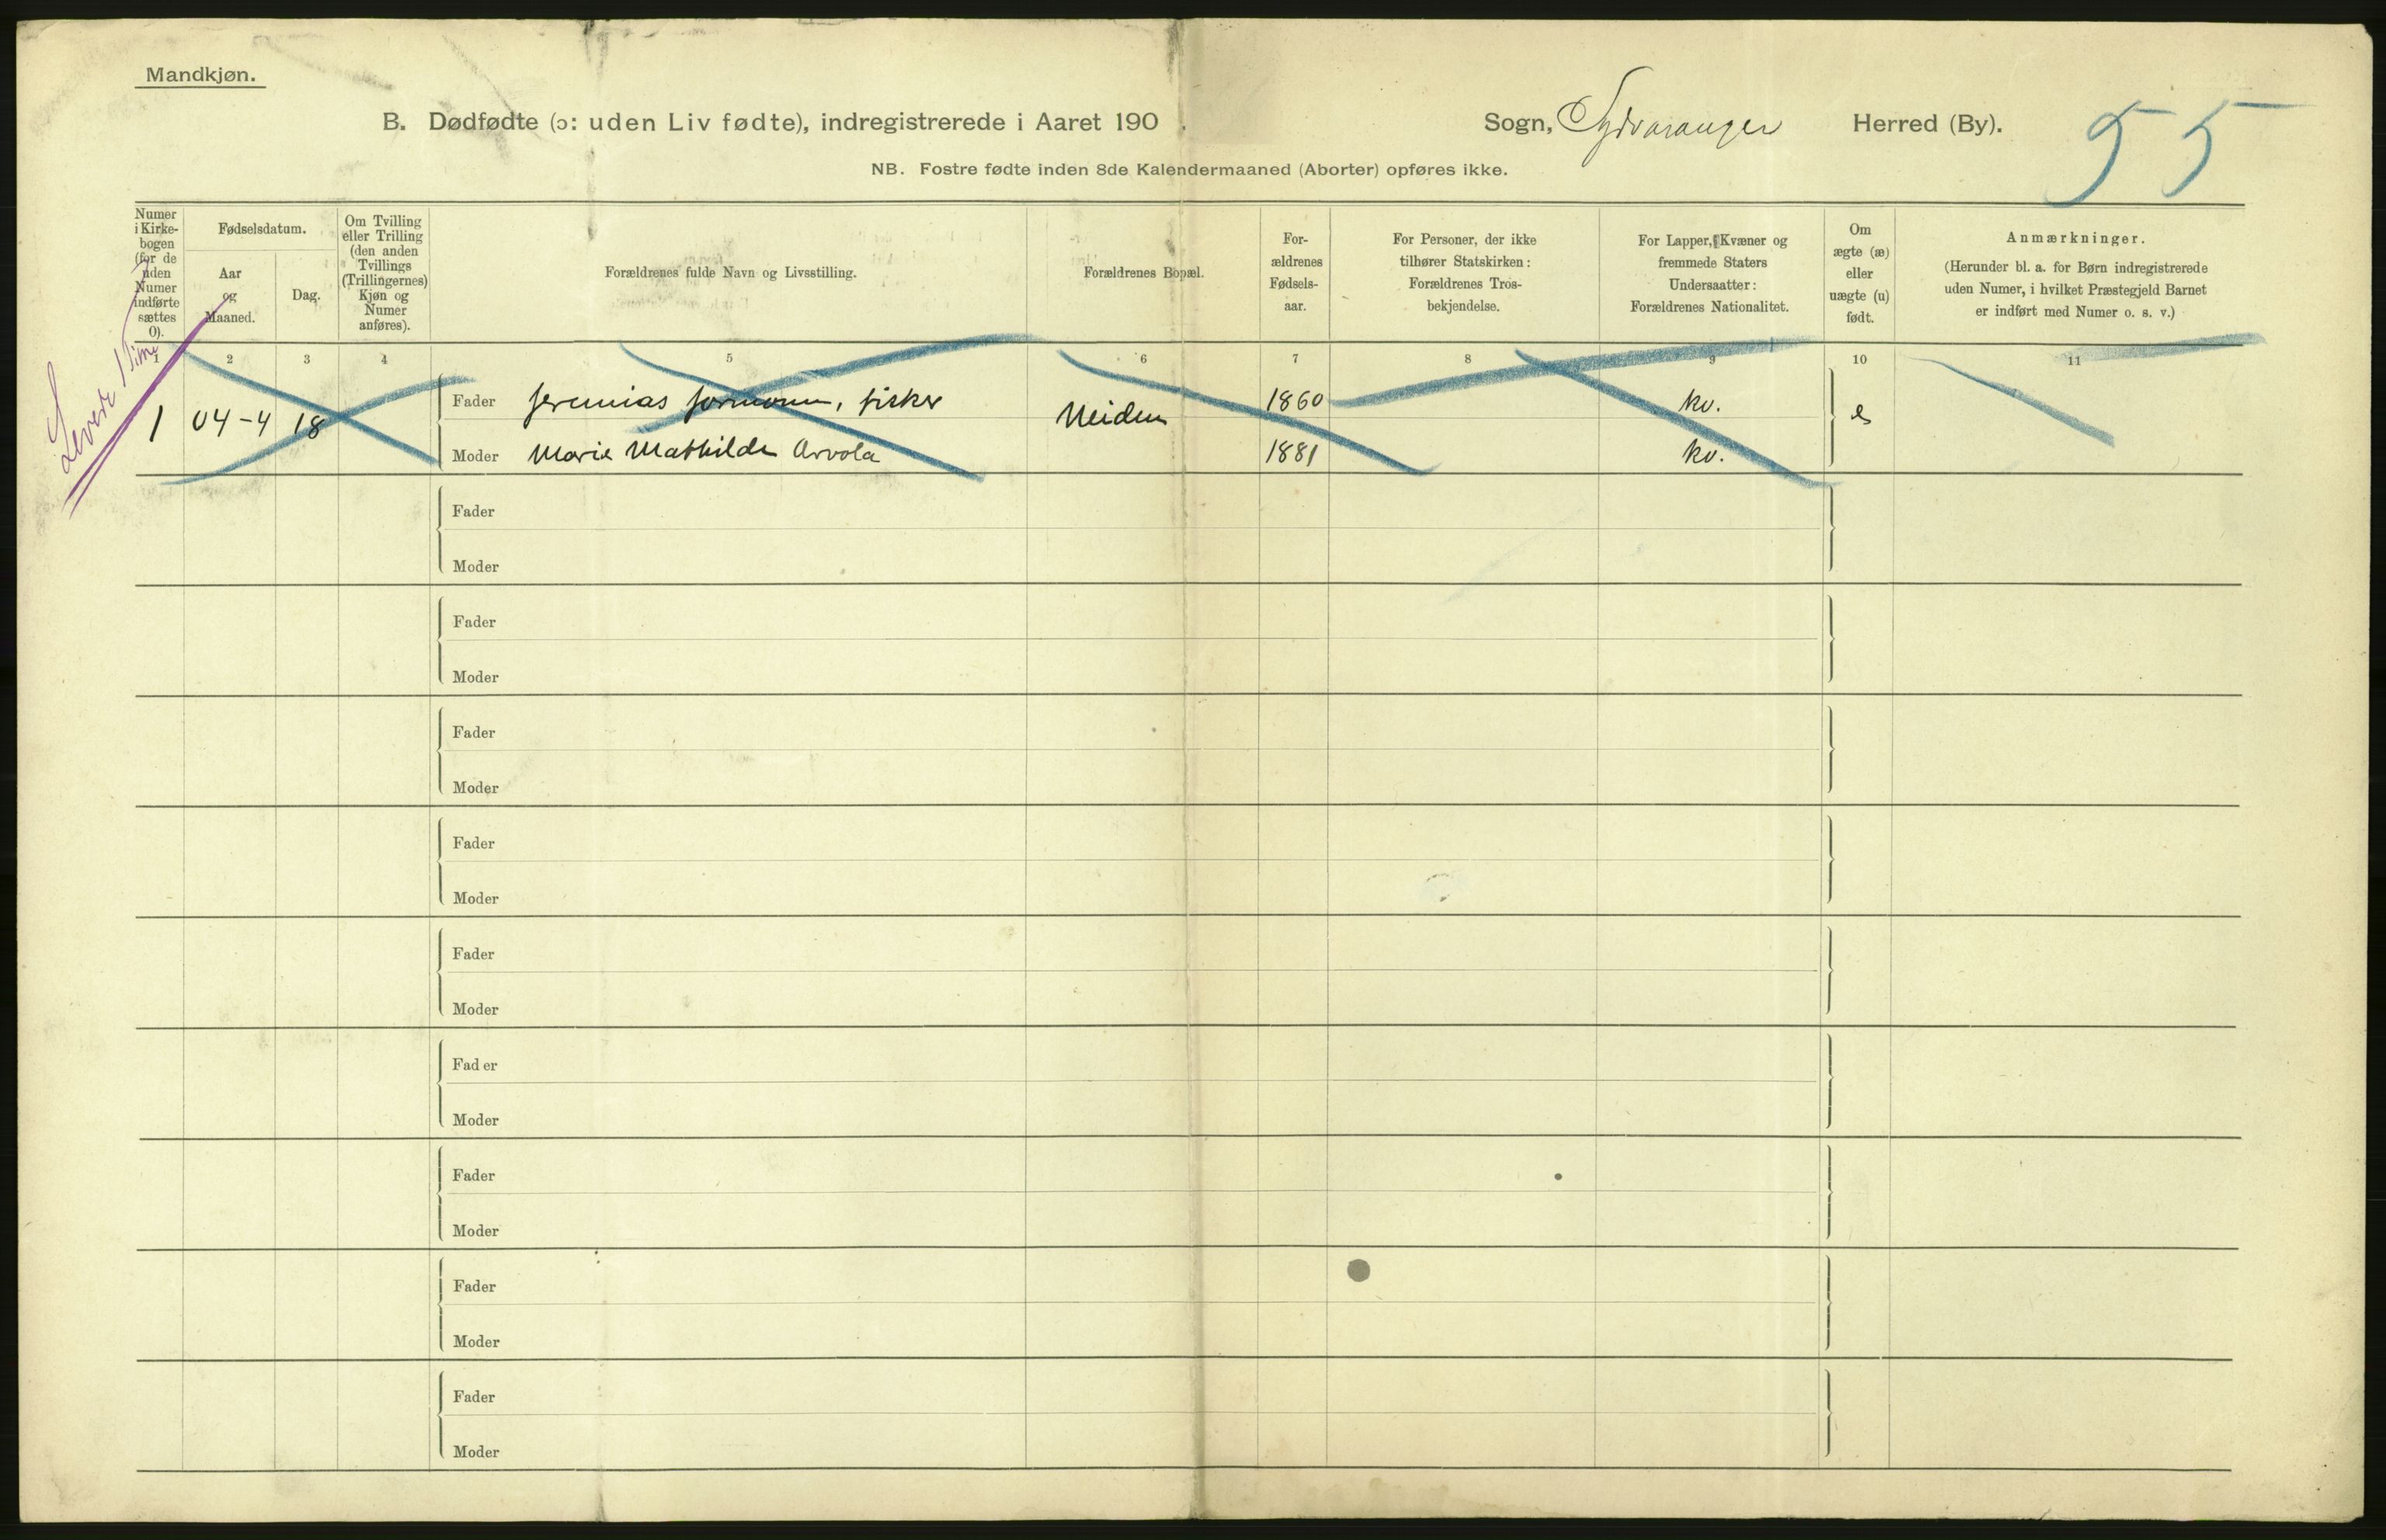 Mandkjøn.
B. Dødfødte (ɔ: uden Liv fødte), indregistrerede i Aaret 190 . Sogn, Sydvaranger Herred (By). 55
NB. Fostre fødte inden 8de Kalendermaaned (Aborter) opføres ikke.
Numer i Kirke-bogen (for de uden Numer indførte sættes 0).
Fødselsdatum.
Aar og Maaned.
Dag.
Om Tvilling eller Trilling (den anden Tvillings (Trillingernes) Kjøn og Numer anføres).
Forældrenes fulde Navn og Livsstilling.
Forældrenes Bopæl.
For-ældrenes Fødsels-aar.
For Personer, der ikke tilhører Statskirken: Forældrenes Tros-bekjendelse.
For Lapper, Kvæner og fremmede Staters Undersaatter: Forældrenes Nationalitet.
Om ægte (æ) eller uægte (u) født.
Anmærkninger.
(Herunder bl. a. for Børn indregistrerede uden Numer, i hvilket Præstegjeld Barnet er indført med Numer o. s. v.)
1 2 3 4 5 6 7 8 9 10 11
Levede 1 Time
1 04-4 18 Fader Jeremias, fisker Neiden 1860 kv. æ
Moder Marie Mathilde Arvola 1881 kv.
Fader
Moder
Fader
Moder
Fader
Moder
Fader
Moder
Fader
Moder
Fader
Moder
Fader
Moder
Fader
Moder
Fader
Moder